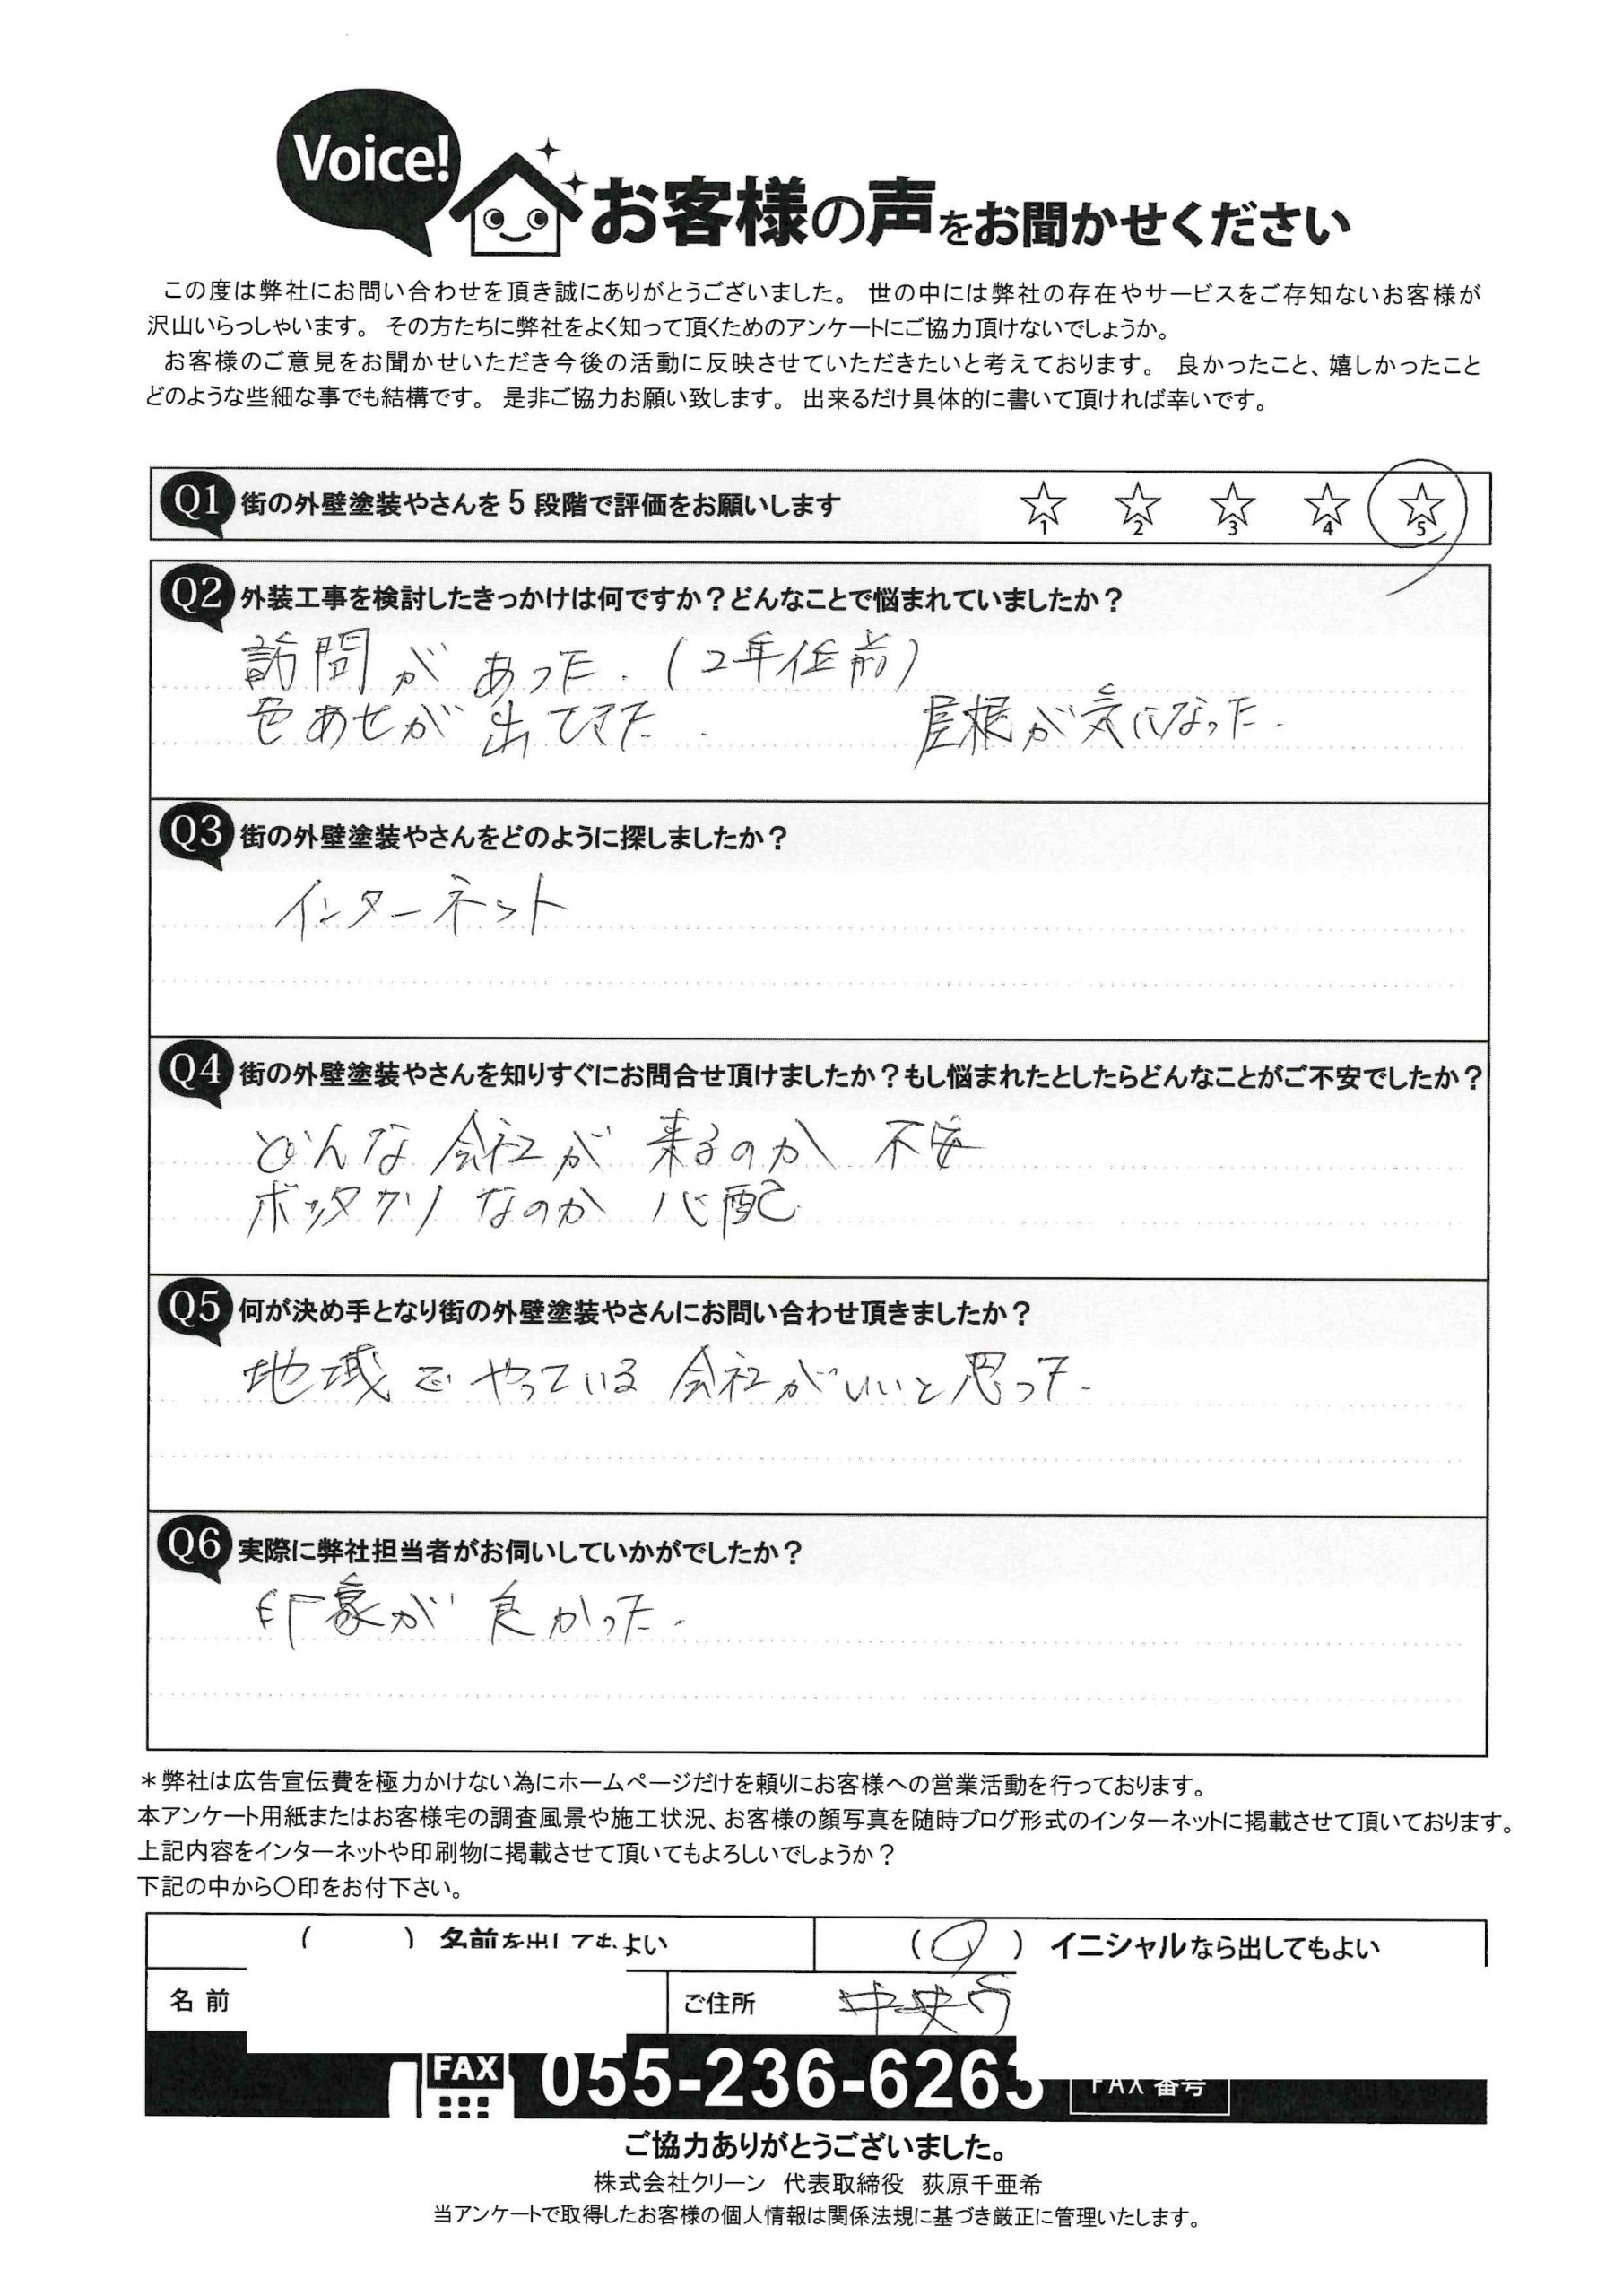 Voice!
お客様の声をお聞かせください
この度は弊社にお問い合わせを頂き誠にありがとうございました。 世の中には弊社の存在やサービスをご存知ないお客様が
沢山いらっしゃいます。 その方たちに弊社をよく知って頂くためのアンケートにご協力頂けないでしょうか。
お客様のご意見をお聞かせいただき今後の活動に反映させていただきたいと考えております。 良かったこと、嬉しかったこと
どのような些細な事でも結構です。 是非ご協力お願い致します。 出来るだけ具体的に書いて頂ければ幸いです。
Q1 街の外壁塗装やさんを5段階で評価をお願いします ☆1 ☆2 ☆3 ☆4 ☆5
Q2 外装工事を検討したきっかけは何ですか？どんなことで悩まれていましたか？
訪問があった.(2年位前)
色あせが出てきた. 屋根が気になった.
Q3 街の外壁塗装やさんをどのように探しましたか？
インターネット
Q4 街の外壁塗装やさんを知りすぐにお問合せ頂けましたか？もし悩まれたとしたらどんなことがご不安でしたか？
どんな会社が来るのか 不安
ボッタクリなのか 心配
Q5 何が決め手となり街の外壁塗装やさんにお問い合わせ頂きましたか？
地域でやっている会社がいいと思った.
Q6 実際に弊社担当者がお伺いしていかがでしたか？
印象が良かった.
＊弊社は広告宣伝費を極力かけない為にホームページだけを頼りにお客様への営業活動を行っております。
本アンケート用紙またはお客様宅の調査風景や施工状況、お客様の顔写真を随時ブログ形式のインターネットに掲載させて頂いております。
上記内容をインターネットや印刷物に掲載させて頂いてもよろしいでしょうか？
下記の中から〇印をお付下さい。
( ) 名前を出してもよい (○) イニシャルなら出してもよい
名前 ご住所 中央市
FAX 055-236-6263 FAX 番号
ご協力ありがとうございました。
株式会社クリーン 代表取締役 荻原千亜希
当アンケートで取得したお客様の個人情報は関係法規に基づき厳正に管理いたします。